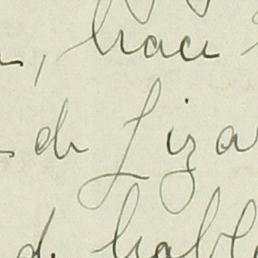 , hace
de Liza
d habl